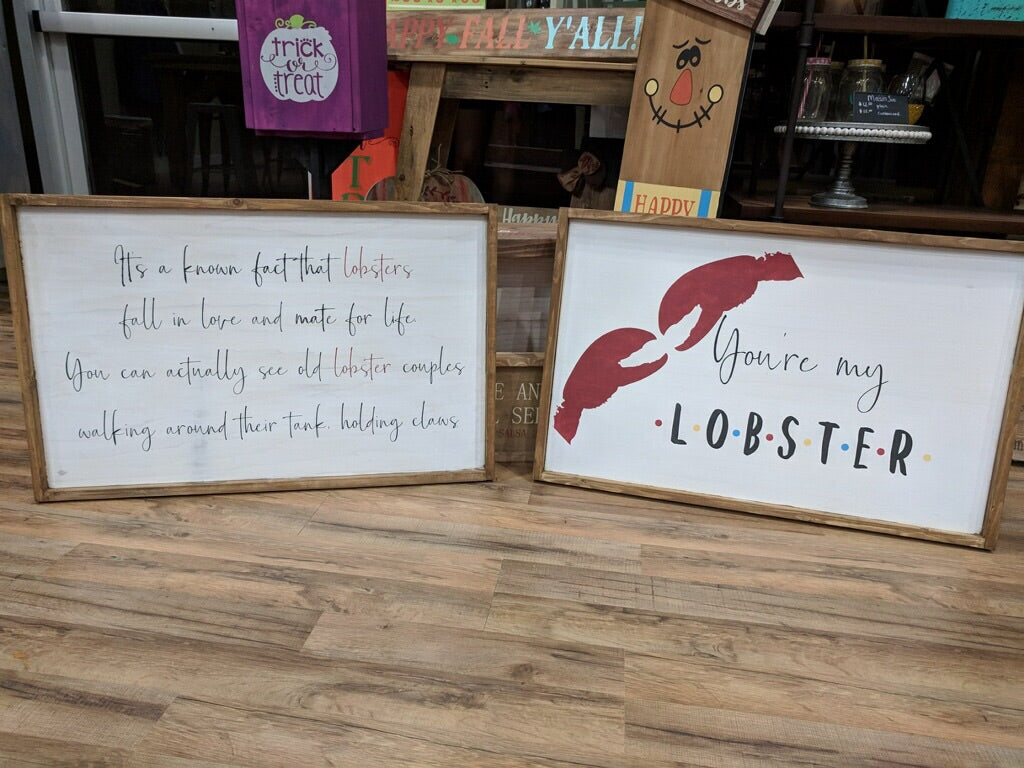 trick
or
treat
APPY FALL Y'ALL!
Mason Jar
HAPPY
Happy
It's a known fact that lobsters
fall in love and mate for life.
You can actually see old lobster couples
walking around their tank. holding claws
You're my
L·O·B·S·T·E·R